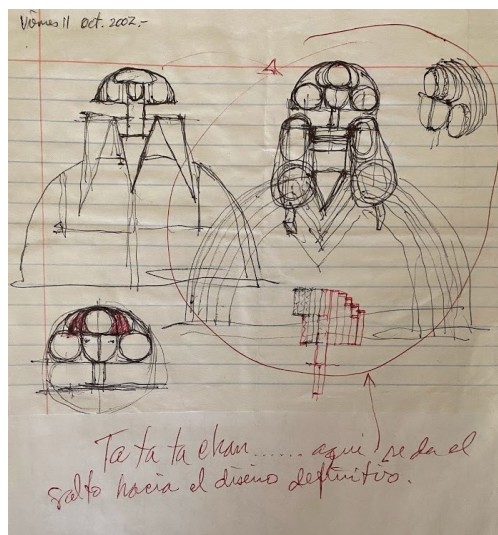 Viernes 11 Oct. 2002.-
Ta ta ta chan...... aqui se da el
salto hacia el diseño definitivo.